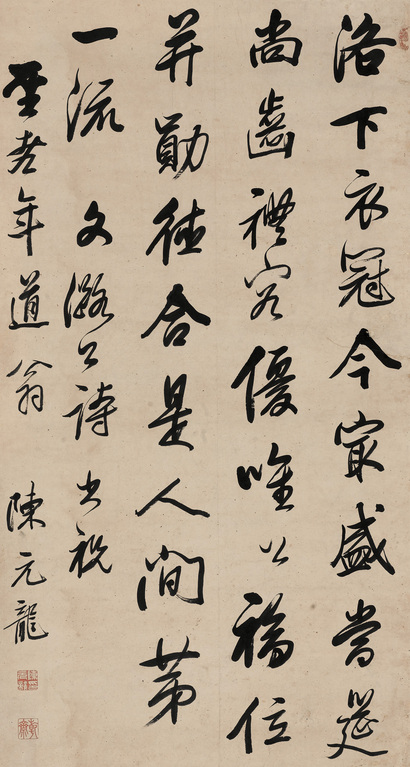 洛下衣冠今㝡盛當筵
尚齒禮容優唯公福位
并勛德合是人間苐
一流 文潞公詩書祝
聖老年道翁 陳元龍